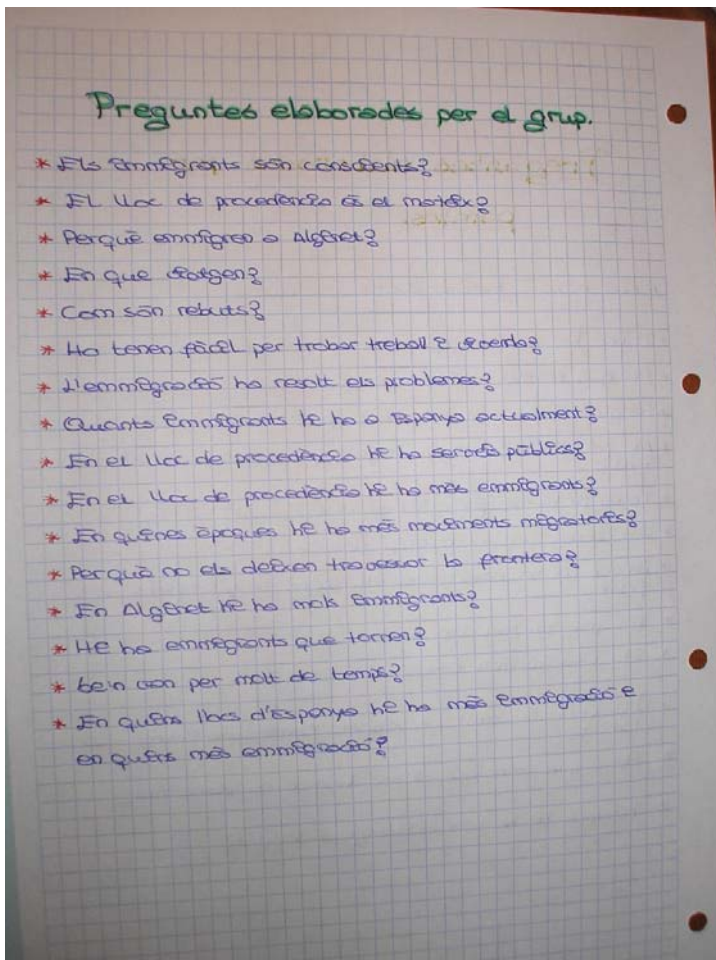 Preguntes elaborades per el grup.
* Els immigrants són conscients?
* El lloc de procedència és el mateix?
* Perquè emmigren a Alginet?
* En que viatgen?
* Com són rebuts?
* Ho tenen fàcil per trobar treball i vivenda?
* L'emmigració ha resolt els problemes?
* Quants immigrants hi ha a Espanya actualment?
* En el lloc de procedència hi ha serveis públics?
* En el lloc de procedència hi ha més emmigrants?
* En quines èpoques hi ha més moviments migratoris?
* Perquè no els deixen travessar la frontera?
* En Alginet hi ha molts immigrants?
* Hi ha emmigrants que tornen?
* Se'n van per molt de temps?
* En quins llocs d'espanya hi ha més immigració i
en quins més emmigració?